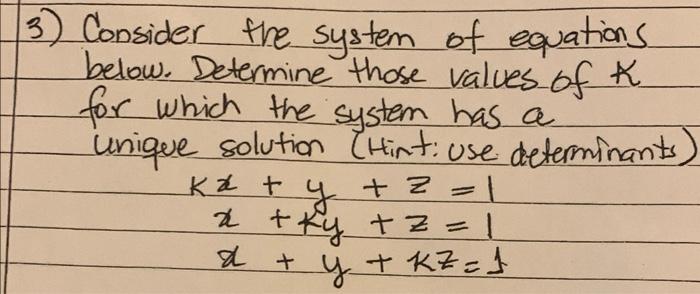 3) Consider the system of equations
below. Determine those values of K
for which the system has a
unique solution (Hint: use determinants)
Kx + y + z = 1
x + Ky + z = 1
x + y + KZ = 1